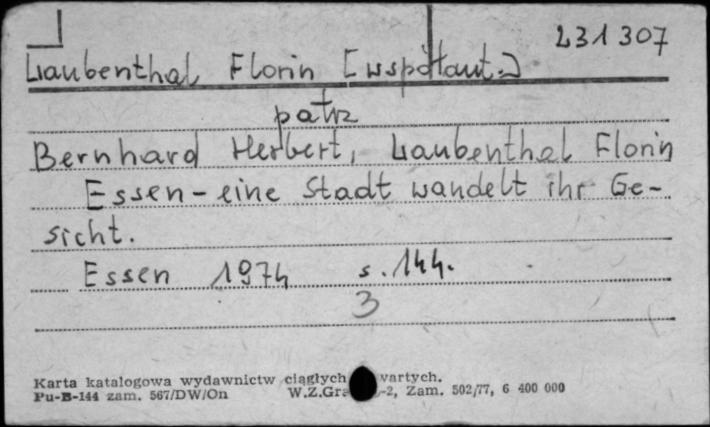 231307
Laubenthal Florin [współaut.]
patrz
Bernhard Herbert, Laubenthal Florin
Essen - eine Stadt wandelt ihr Ge-
sicht.
Essen 1974 s. 144.
3
Karta katalogowa wydawnictw ciągłych wartych.
Pu-B-144 zam. 567/DW/On W.Z.Gra -2, Zam. 502/77, 6 400 000